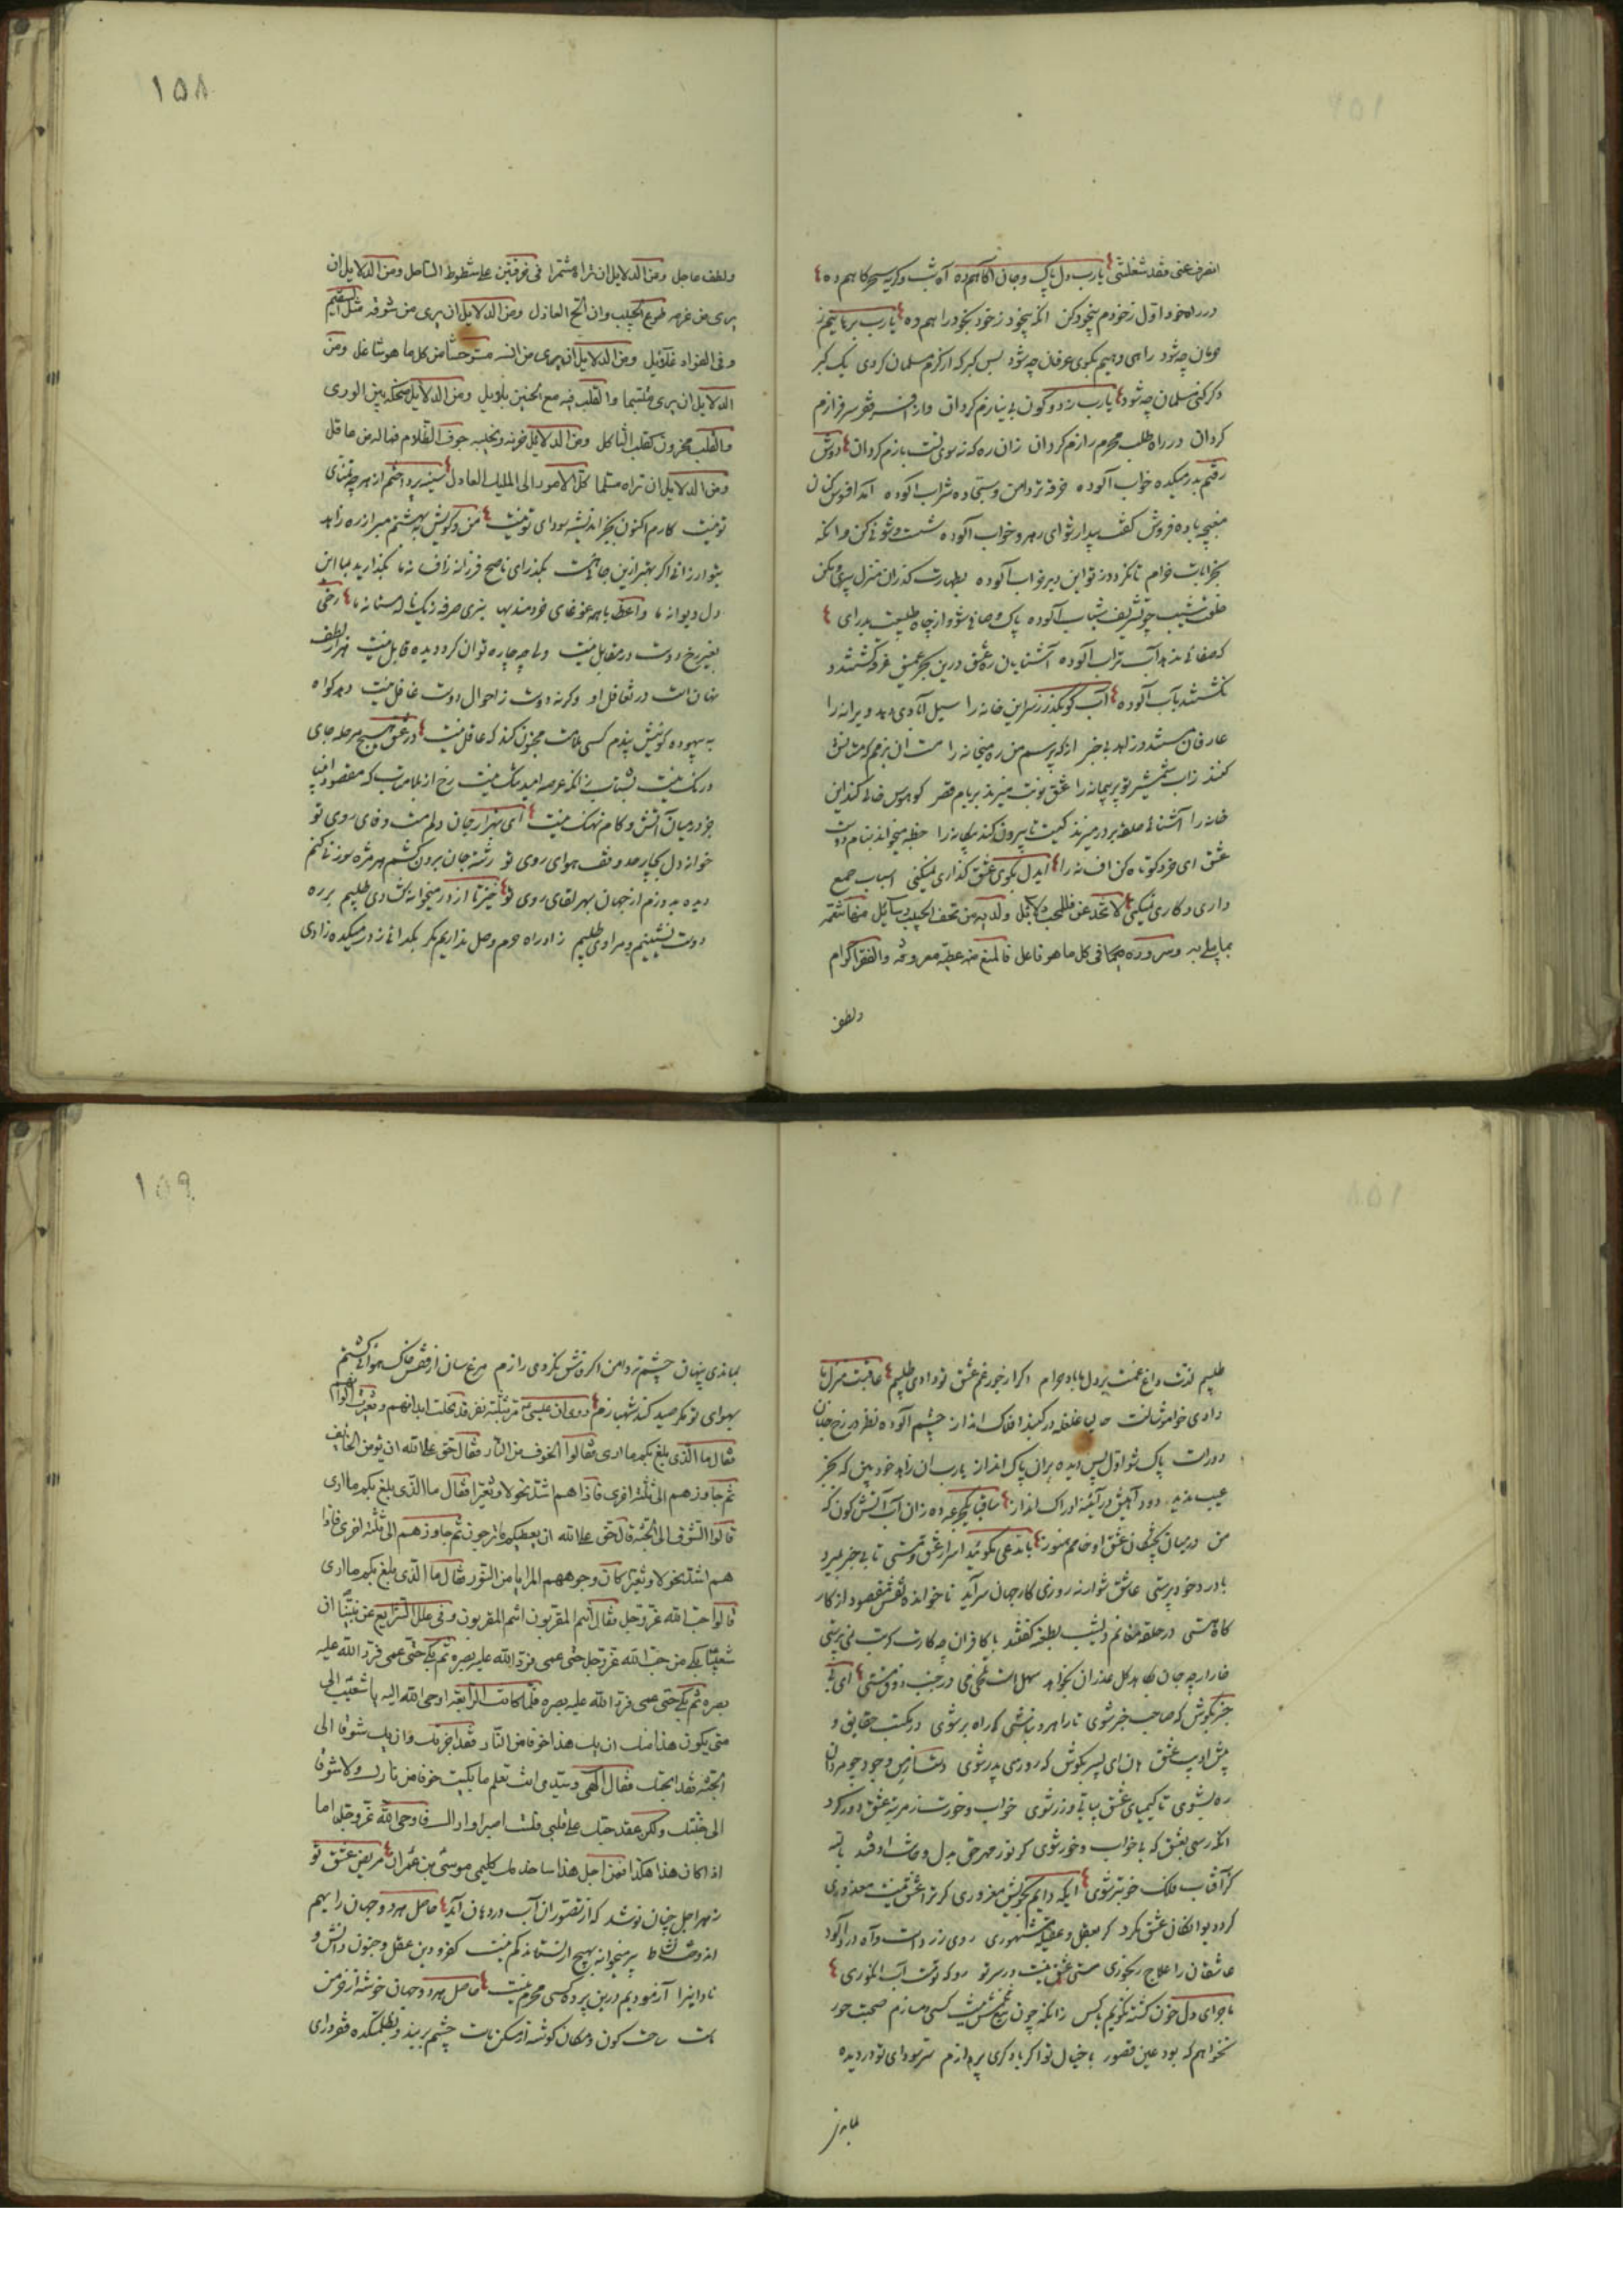 انصرف عنی فقد شغلتنی یارب دل پاک و جان آگاهم ده آه شب و گریه سحرگاهم ده
در راه خود اول ز خودم بیخود کن انگه بیخود ز خود بخود راهم ده یارب برهانیم ز
حرمان چه شود راهی دهیم بکوی عرفان چه شود بس گبر که از کرم مسلمان کردی یک گبر
دگر کنی مسلمان چه شود یارب ز دو کون بی نیازم گردان وز افسر فقر سرفرازم
گردان در راه طلب محرم رازم گردان زان ره که نه سوی تست بازم گردان دوش
رفتم بدر میکده خواب آلوده خرقه تر دامن و سجاده شراب آلوده آمد افسوس کنان
مغبچه باده فروش گفت بیدار شو ای رهرو خواب آلوده شست و شوئی کن وانگه
بخرابات خرام تا نگردد ز تو این دیر خراب آلوده بطهارت گذران منزل پیری و مکن
خلعت شیب چو تشریف شباب آلوده پاک و صافی شو و از چاه طبیعت بدر آی
که صفائی ندهد آب تراب آلوده آشنایان ره عشق درین بحر عمیق غرقه گشتند و
نگشتند بآب آلوده آب کو بگذر ز سر این خانه را سیل آبادی دهد ویرانه را
عارفان مستند و زاهد بی خبر از که پرسم من ره میخانه را مست آن بزمم که مستانش
کنند زاب شمشیر تو پر پیمانه را عشق نوبت میزند بر بام قصر کو هوس خالی کند این
خانه را آشنائی حلقه بر در میزند کیست تا بیرون کند بیگانه را خطبه میخواند بنام دوست
عشق ای خرد کوتاه کن افسانه را ایدل بکوی عشق گذاری نمیکنی اسباب جمع
داری و کاری نمیکنی لا تخدعن فللمحب دلائل ولدیه من تحف الحبیب وسائل منها تنعمه
بما یبلی به وسروره فی کل ما هو فاعل فالمنع منه عطیة معروفة والفقر اکرام
ولطف
۱۵۸
ولطف عاجل ومن الدلایل ان تراه مشمرا فی خرقتین علی شطوط الساحل ومن الدلایل ان
یری من عزمه طوع الحبیب وان الح العاذل ومن الدلایل ان یری من شوقه مثل السقیم
وفی الفؤاد غلائل ومن الدلایل ان یری من انسه مستوحشا من کل ما هو شاغل ومن
الدلایل ان یری متبسما والقلب فیه مع الحنین بلابل ومن الدلایل ضحکه بین الوری
والقلب محزون کقلب الثاکل ومن الدلایل حزنه ونحیبه جوف الظلام فما له من عاقل
ومن الدلایل ان تراه مسلما کل الامور الی الملیک العادل سینه پرداختم از هر چه تمنای
تو نیست کارم اکنون بجز اندیشه سودای تو نیست من و کویش بهشتم مبر از ره زاهد
بتو ارزانی اگر بهتر ازین جائی هست بگذر ای ناصح فرزانه ز افسانه ما بگذارید بما این
دل دیوانه ما واعظ با همه غوغای خردمندیها نبری صرفه ز یک ناله مستانه ما رخی
بغیر رخ دوست در مقابل نیست ولی چه چاره توان کرد دیده قابل نیست هزار لطف
نهان است در تغافل او وگرنه دوست ز احوال دوست غافل نیست دهد گواه
به بیهوده گوئیش پندم کسی ملامت مجنون کند که عاقل نیست در عشق هیچ مرحله جای
درنگ نیست بشتاب زانکه عرصه امید تنگ نیست رخ از بلا متاب که مقصود انبیا
جز در میان آتش و کام نهنگ نیست ای هزار جان و دلم مست وفای روی تو
خوانه دل بچار حد وقف هوای روی تو رشته جان برون کشم هر مژه سوزنی کنم
دیده بدوزم از جهان بهر لقای روی تو خیز تا از در میخانه گشادی طلبیم بر ره
دوست نشینیم و مرادی طلبیم زاد راه حرم وصل نداریم مگر بگدائی ز در میکده زادی
طلبیم لذت داغ غمت بر دل ما باد حرام اگر از جور غم عشق تو دادی طلبیم عاقبت منزل ما
وادی خاموشانست حالیا غلغله در گنبد افلاک انداز چشم آلوده نظر در رخ جانان
دورست پاک شو اول پس دیده بر آن پاک انداز یارب آن زاهد خودبین که بجز
عیب ندید دود آهیش در آینه ادراک انداز ساقیا یک جرعه ده زان آب آتش گون که
من در میان پختگان عشق او خامم هنوز با مدعی مگوئید اسرار عشق و مستی تا بی خبر بمیرد
با درد خودپرستی عاشق شو ارنه روزی کار جهان سرآید ناخوانده نقش مقصود از کار
گاه هستی در حلقه مغانم دیشب بطعنه گفتند با کافران چه کارت گر بت نمی پرستی
خار ار چه جان بکاهد گل عذر آن بخواهد سهل است تلخی می در جنب ذوق مستی ای بی
خبر بکوش که صاحب خبر شوی تا راهرو نباشی کی راهبر شوی در مکتب حقایق و
پیش ادیب عشق هان ای پسر بکوش که روزی پدر شوی دست از مس وجود چو مردان
ره بشوی تا کیمیای عشق بیابی و زر شوی خواب و خورت ز مرتبه عشق دور کرد
انگه رسی بعشق که بی خواب و خور شوی گر نور مهر حق بدل و جانت اوفتد بالله
کز آفتاب فلک خوبتر شوی ایکه دایم بخویش مغروری گر ترا عشق نیست معذوری
گرد دیوانگان عشق مگرد گر بعقل و عقیله مشهوری روی زرد است و آه دردآلود
عاشقان را علاج رنجوری مستی عشق نیست در سر تو رو که تو مست آب انگوری
ماجرای دل خون گشته نگویم با کس زانکه چون تیغ غمش نیست کسی دمسازم صحبت حور
نخواهم که بود عین قصور با خیال تو اگر با دگری پردازم سر سودای تو در دیده
بماندی
۱۵۹
بماندی پنهان چشم تر دامن اگر فاش نکردی رازم مرغ سان از قفس خاک هوائی گشتم
بهوای تو مگر صید کند شهبازم روی ان عیسی ع مر بثلثة نفر قد نحلت ابدانهم وتغیرت الوانهم
فقال ما الذی بلغ بکم ما اری فقالوا الخوف من النار فقال حق علی الله ان یؤمن الخایف
ثم جاوزهم الی ثلثة اخری فاذا هم اشد نحولا وتغیرا فقال ما الذی بلغ بکم ما اری
قالوا الشوق الی الجنة قال حق علی الله ان یعطیکم ما ترجون ثم جاوزهم الی ثلثة اخری فاذا
هم اشد نحولا وتغیرا کان وجوههم المرایا من النور فقال ما الذی بلغ بکم ما اری
قالوا حب الله عز وجل فقال انتم المقربون انتم المقربون وفی علل الشرایع عن نبینا ان
شعیبا بکی من حب الله عز وجل حتی عمی فرد الله علیه بصره ثم بکی حتی عمی فرد الله علیه
بصره ثم بکی حتی عمی فرد الله علیه بصره فلما کانت الرابعة اوحی الله الیه یا شعیب الی
متی یکون هذا منک ان یک هذا خوفا من النار فقد اجرتک وان یک شوقا الی
الجنة فقد ابحتک فقال الهی وسیدی انت تعلم ما بکیت خوفا من نارک ولا شوقا
الی جنتک ولکن عقد حبک علی قلبی فلست اصبر او اراک فاوحی الله عز وجل اما
اذا کان هذا هکذا فمن اجل هذا ساخدمک کلیمی موسی بن عمران مریض عشق تو
زهر اجل چنان نوشد که از تصور آن آب در دهان آید حاصل هر دو جهان را بهم
اندوخته پیر میخانه بهیچ ار نستاند کم نیست کفر و دین عقل و جنون دانش و
نادانی را آزمودیم درین پرده کسی محرم نیست حاصل هر دو جهان خوشه از خرمن
ماست ساحت کون و مکان گوشه از مسکن ماست چشم بربند و بظلمتکده فقر درای